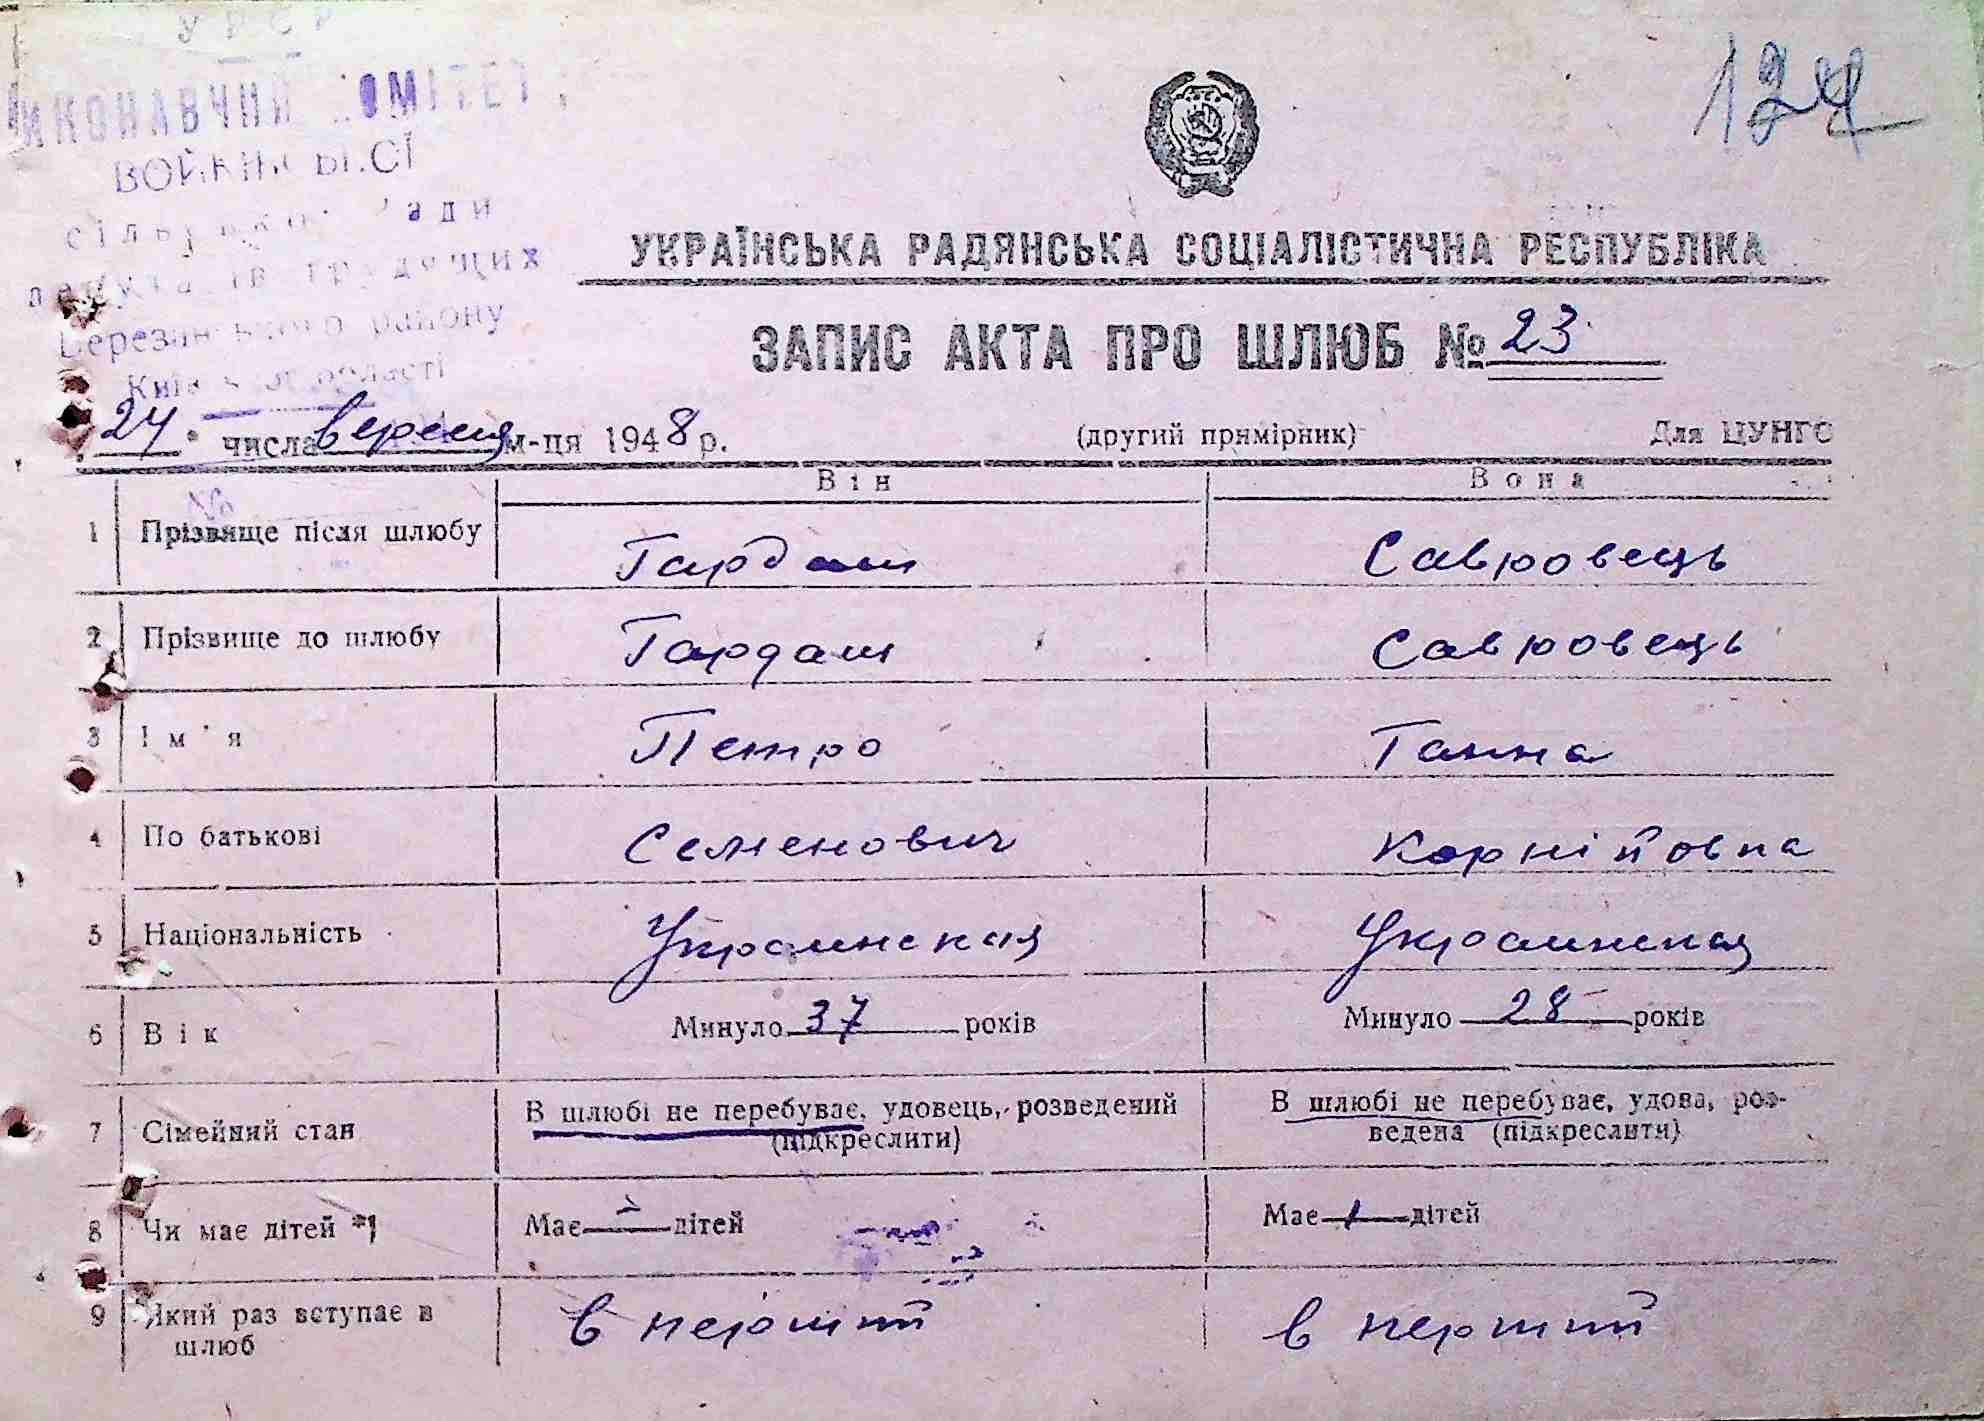 УРСР
ВИКОНАВЧИЙ КОМІТЕТ
сільської Ради
депутатів трудящих
Березанського району
Київської області
124
УКРАЇНСЬКА РАДЯНСЬКА СОЦІАЛІСТИЧНА РЕСПУБЛІКА
ЗАПИС АКТА ПРО ШЛЮБ № 23
24 числа вересня м-ця 1948 р. (другий примірник) Для ЦУНГО
№
Він Вона
1 Прізвище після шлюбу Гардаш Савровець
2 Прізвище до шлюбу Гардаш Савровець
3 Ім'я Петро Ганна
4 По батькові Семенович Корнійовна
5 Національність Украинская Украинская
6 Вік Минуло 37 років Минуло 28 років
7 Сімейний стан В шлюбі не перебуває, удовець, розведений В шлюбі не перебуває, удова, роз-
(підкреслити) ведена (підкреслити)
8 Чи має дітей *) Має — дітей Має 1 дітей
9 Який раз вступає в в перший в перший
шлюб